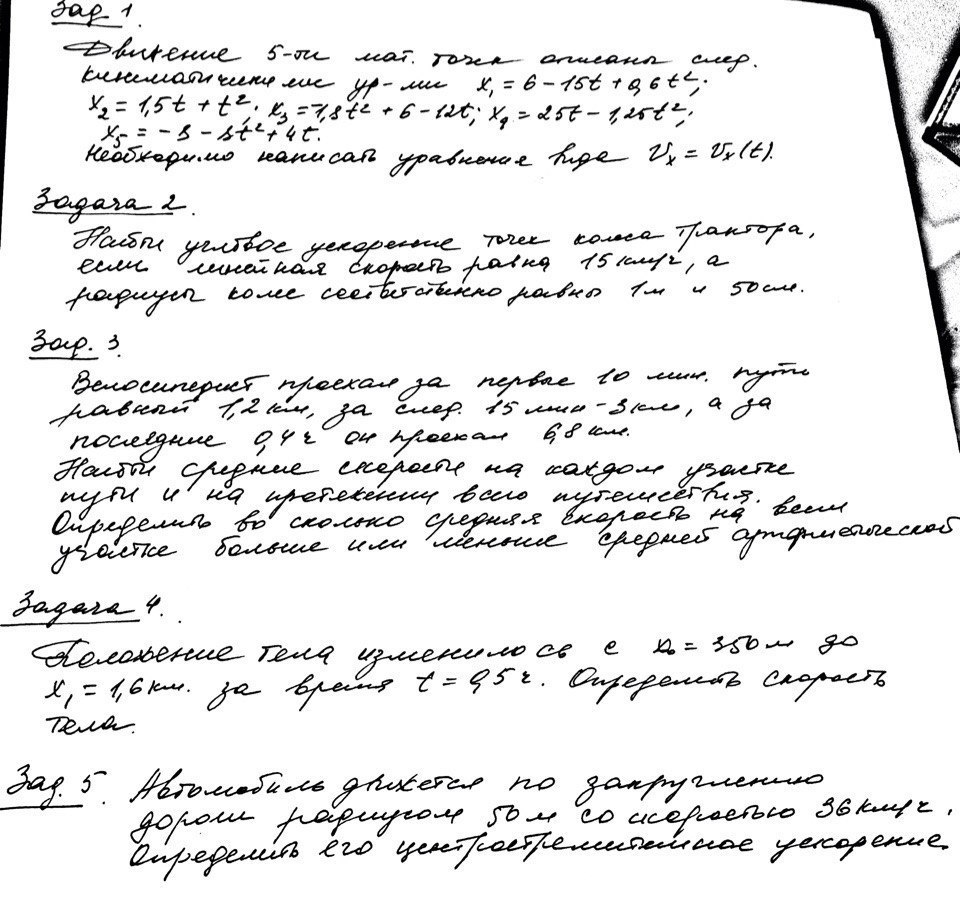 Зад 1.
Движение 5-ти мат. точек описаны след.
кинематическими ур-ми x₁ = 6 - 15t + 0,6t²;
x₂ = 1,5t + t²; x₃ = 1,8t² + 6 - 12t; x₄ = 25t - 1,25t²;
x₅ = -3 - 3t² + 4t.
Необходимо написать уравнение вида Vₓ = Vₓ(t).
Задача 2.
Найти угловое ускорение точек колеса трактора,
если линейная скорость равна 15 км/ч, а
радиусы колес соответственно равны 1м и 50 см.
Зад. 3.
Велосипедист проехал за первые 10 мин. путь
равный 1,2 км, за след. 15 мин - 3 км, а за
последние 0,4 ч он проехал 6,8 км.
Найти средние скорости на каждом участке
пути и на протяжении всего путешествия.
Определить во сколько средняя скорость на всем
участке больше или меньше средней арифметической
Задача 4.
Положение тела изменилось с x₀ = 350 м до
x₁ = 1,6 км. за время t = 0,5 ч. Определить скорость
тела.
Зад. 5. Автомобиль движется по закруглению
дороги радиусом 50 м со скоростью 36 км/ч.
Определить его центростремительное ускорение.